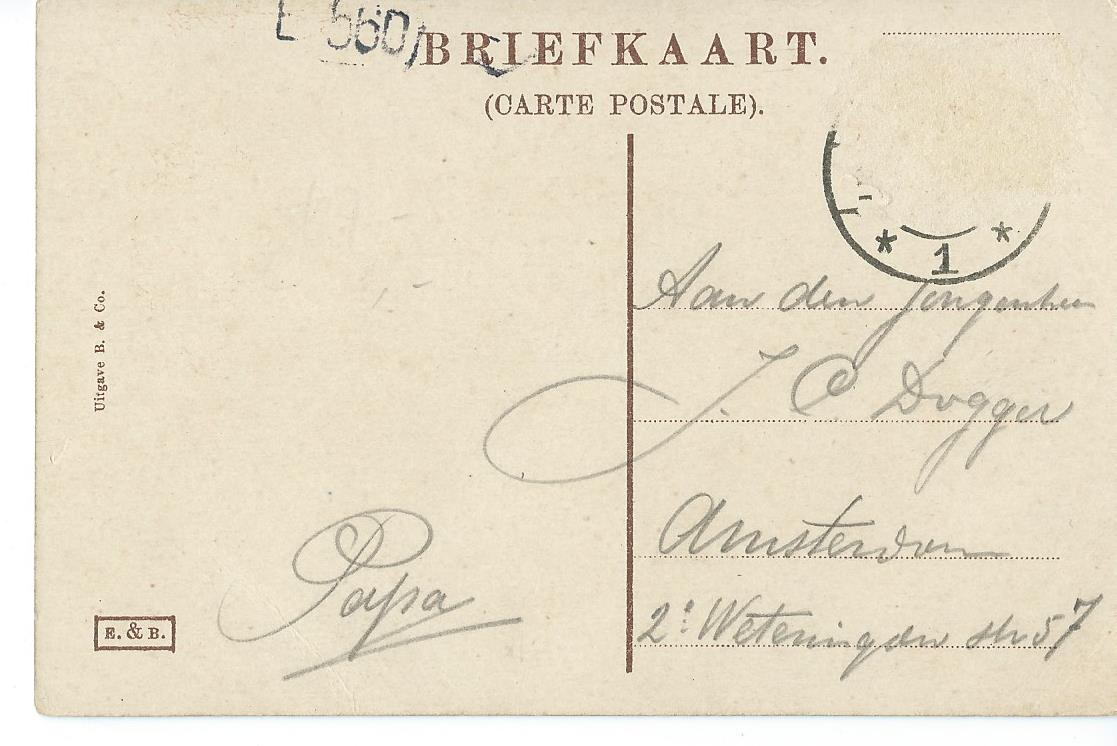 L 560
BRIEFKAART.
(CARTE POSTALE).
* 1 *
Aan den Jongenheer
J. C. Dogger
Amsterdam
2e Weteringdw str 57
Papa
Uitgave B. & Co.
E. & B.